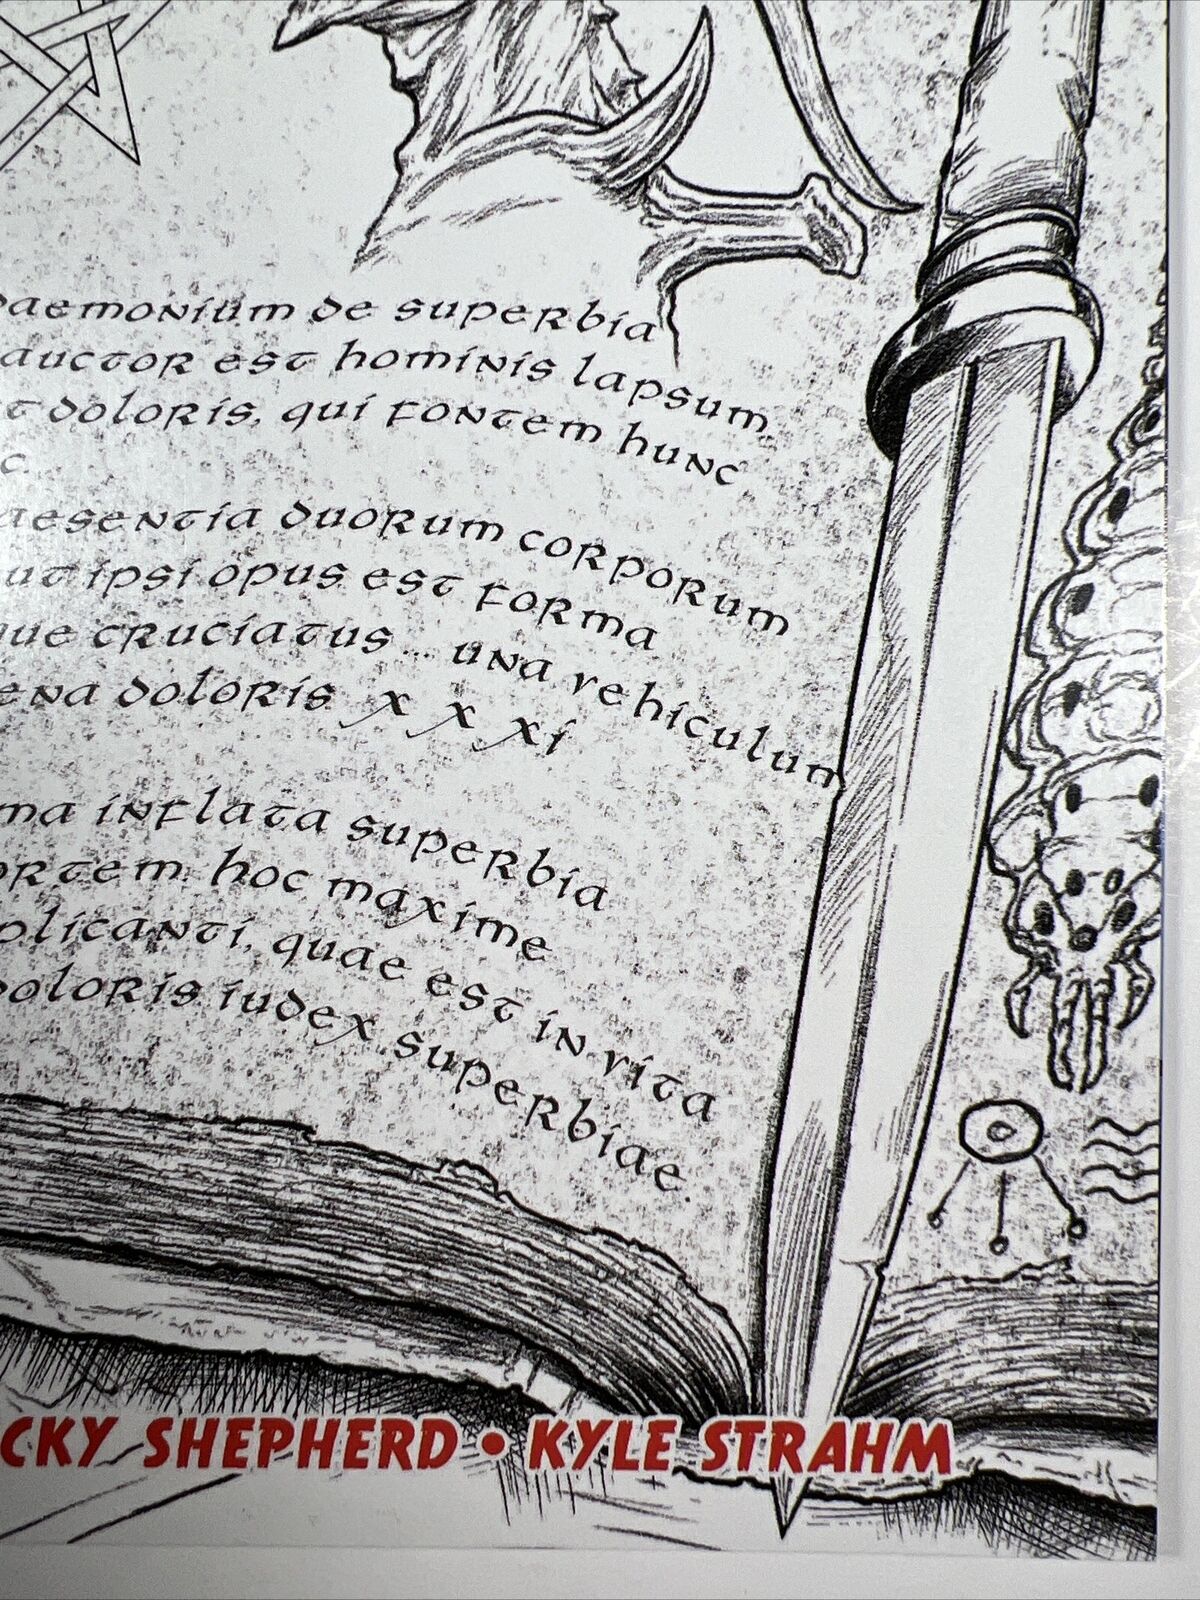 daemonium de superbia
auctor est hominis lapsum
doloris, qui fontem hunc
c.
aesentia duorum corporum
ut ipsi opus est forma
que cruciatus... una vehiculum
ena doloris x x xi
ma inflata superbia
ortem hoc maxime
plicanti, quae est in vita
doloris iudex superbiae.
CKY SHEPHERD • KYLE STRAHM